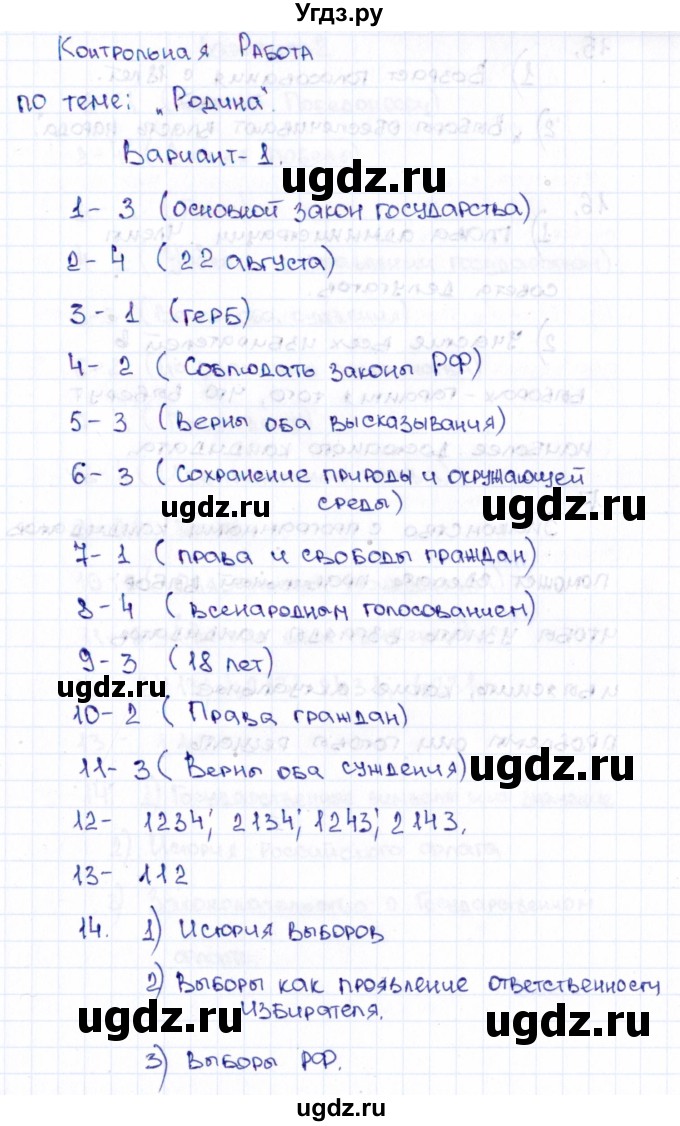 Угдз.ру
Контрольная Работа
по теме: „Родина".
Вариант-1.
ugdz.ru
1- 3 (основной закон государства)
2- 4 (22 августа)
3- 1 (герб)
4- 2 (Соблюдать законы РФ)
5- 3 (верны оба высказывания)
6- 3 (Сохранение природы и окружающей
среды)
ugdz.ru ugdz.ru
7- 1 (права и свободы граждан)
8- 4 (всенародным голосованием)
9- 3 (18 лет)
ugdz.ru
10- 2 (Права граждан)
11- 3 (Верны оба суждения)
ugdz.ru
12- 1234; 2134; 1243; 2143.
13- 112
14. 1) История выборов
2) Выборы как проявление ответственности
избирателя.
ugdz.ru ugdz.ru
3) Выборы РФ.
ugdz.ru